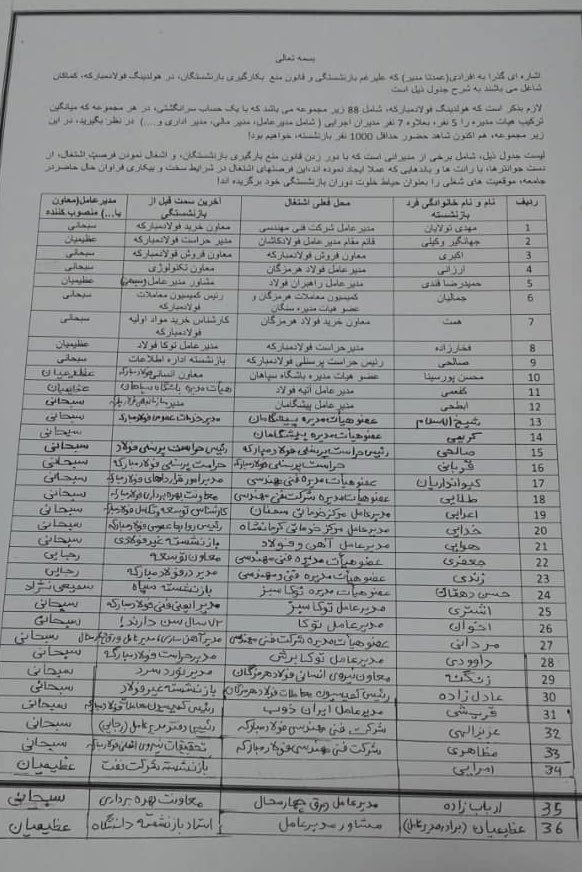 بسمه تعالی
اشاره ای گذرا به افرادی(عمدتا مدیر) که علیرغم بازنشستگی و قانون منع بکارگیری بازنشستگان، در هولدینگ فولادمبارکه، کماکان
شاغل می باشند به شرح جدول ذیل است
لازم بذکر است که هولدینگ فولادمبارکه، شامل 88 زیر مجموعه می باشد که با یک حساب سرانگشتی، در هر مجموعه که میانگین
ترکیب هیات مدیره را 5 نفر، بعلاوه 7 نفر مدیران اجرایی ( شامل مدیرعامل، مدیر مالی، مدیر اداری و ....) در نظر بگیرید، در این
زیر مجموعه، هم اکنون شاهد حضور حداقل 1000 نفر بازنشسته، خواهیم بود!
لیست جدول ذیل، شامل برخی از مدیرانی است که با دور زدن قانون منع بارگیری بازنشستگان، و اشغال نمودن فرصت اشتغال، از
دست جوانترها، با رانت ها و باندهایی که عملا ایجاد نموده اند،این فرصتهای اشتغال در شرایط سخت و بیکاری فراوان حال حاضردر
جامعه، موقعیت های شغلی را بعنوان حیاط خلوت دوران بازنشستگی خود برگزیده اند!
ردیف نام و نام خانوادگی فرد بازنشسته محل فعلی اشتغال آخرین سمت قبل از بازنشستگی مدیرعامل(معاون یا...) منصوب کننده
1 مهدی تولائیان مدیرعامل شرکت فنی مهندسی معاون خرید فولادمبارکه سبحانی
2 جهانگیر وکیلی قائم مقام مدیرعامل فولادکاشان مدیر حراست فولادمبارکه عظیمیان
3 اکبری معاون فروش فولادمبارکه معاون فروش فولادمبارکه سبحانی
4 ارزانی مدیرعامل فولاد هرمزگان معاون تکنولوژی سبحانی
5 حمیدرضا قندی مدیر عامل راهبران فولاد مشاور مدیر عامل عظیمیان
6 جمالیان کمیسیون معاملات هرمزگان و عضو هیات مدیره سنگان رئیس کمیسیون معاملات فولادمبارکه سبحانی
7 همت معاون خرید فولاد هرمزگان کارشناس خرید مواد اولیه فولادمبارکه سبحانی
8 فخارزاده مدیر حراست فولادمبارکه مدیر عامل توکا فولاد عظیمیان
9 صالحی رئیس حراست پرسنلی فولادمبارکه بازنشسته اداره اطلاعات سبحانی
10 محسن پورسینا عضو هیات مدیره باشگاه سپاهان معاون انسانی فولادمبارکه عظیمیان
11 گلعمی مدیر عامل آتیه فولاد هیات مدیره باشگاه سپاهان عظیمیان
12 ابطحی مدیر عامل پیشگامان مدیر سبحانی
13 شیخ الاسلام عضو هیات مدیره پیشگامان مدیر خدمات عمومی فولادمبارکه سبحانی
14 کریمی عضو هیات مدیره پیشگامان سبحانی
15 صالحی رئیس حراست پرسنلی فولاد مبارکه رئیس حراست پرسنلی فولاد سبحانی
16 قربانی حراست پرسنلی فولاد مبارکه حراست پرسنلی فولادمبارکه سبحانی
17 کیوانداریان عضو هیات مدیره فنی مهندسی مدیر امور قراردادهای فولادمبارکه سبحانی
18 طلایی عضو هیات مدیره شرکت فنی مهندسی معاونت بهره برداری فولادمبارکه سبحانی
19 اعرابی مدیرعامل مرکز خدماتی سمنان کارشناس توسعه فولادمبارکه سبحانی
20 خدایی مدیرعامل مرکز خدماتی کرمانشاه رئیس روابط عمومی فولادمبارکه سبحانی
21 هوایی مدیرعامل آهن و فولاد بازنشسته غیر فولادی سبحانی
22 جعفری عضو هیات مدیره فنی مهندسی معاون توسعه رجایی
23 زندی عضو هیات مدیره فنی و مهندسی مدیر در فولاد مبارکه رجایی
24 حسن دهقان عضو هیات مدیره توکا سبز بازنشسته سپاه سمیعی نژاد
25 اشتری مدیرعامل توکا سبز مدیر ایمنی فنی فولادمبارکه سبحانی
26 اخوان مدیرعامل توکا ۷۲ سال سن دارند! سبحانی
27 مردانی عضو هیات مدیره شرکت فنی مهندسی سبحانی
28 داوودی مدیرعامل توکا برش مدیر حراست فولادمبارکه سبحانی
29 زنگنه معاون نیروی انسانی فولاد هرمزگان مدیر نورد سرد سبحانی
30 عادل زاده رئیس کمیسیون معاملات فولاد هرمزگان بازنشسته غیر فولاد سبحانی
31 قریشی مدیرعامل ایران ذوب رئیس کمیسیون معاملات فولاد مبارکه سبحانی
32 عزیزالهی شرکت فنی مهندسی فولاد مبارکه رئیس دفتر مدیرعامل (رجایی) سبحانی
33 مظاهری شرکت فنی مهندسی فولاد مبارکه تحقیقات نیروی انسانی فولاد مبارکه سبحانی
34 امرایی بازنشسته شرکت نفت عظیمیان
35 ارباب زاده مدیرعامل ورق چهارمحال معاونت بهره برداری سبحانی
36 عظیمیان (برادر مدیرعامل) مشاور مدیرعامل استاد بازنشسته دانشگاه عظیمیان